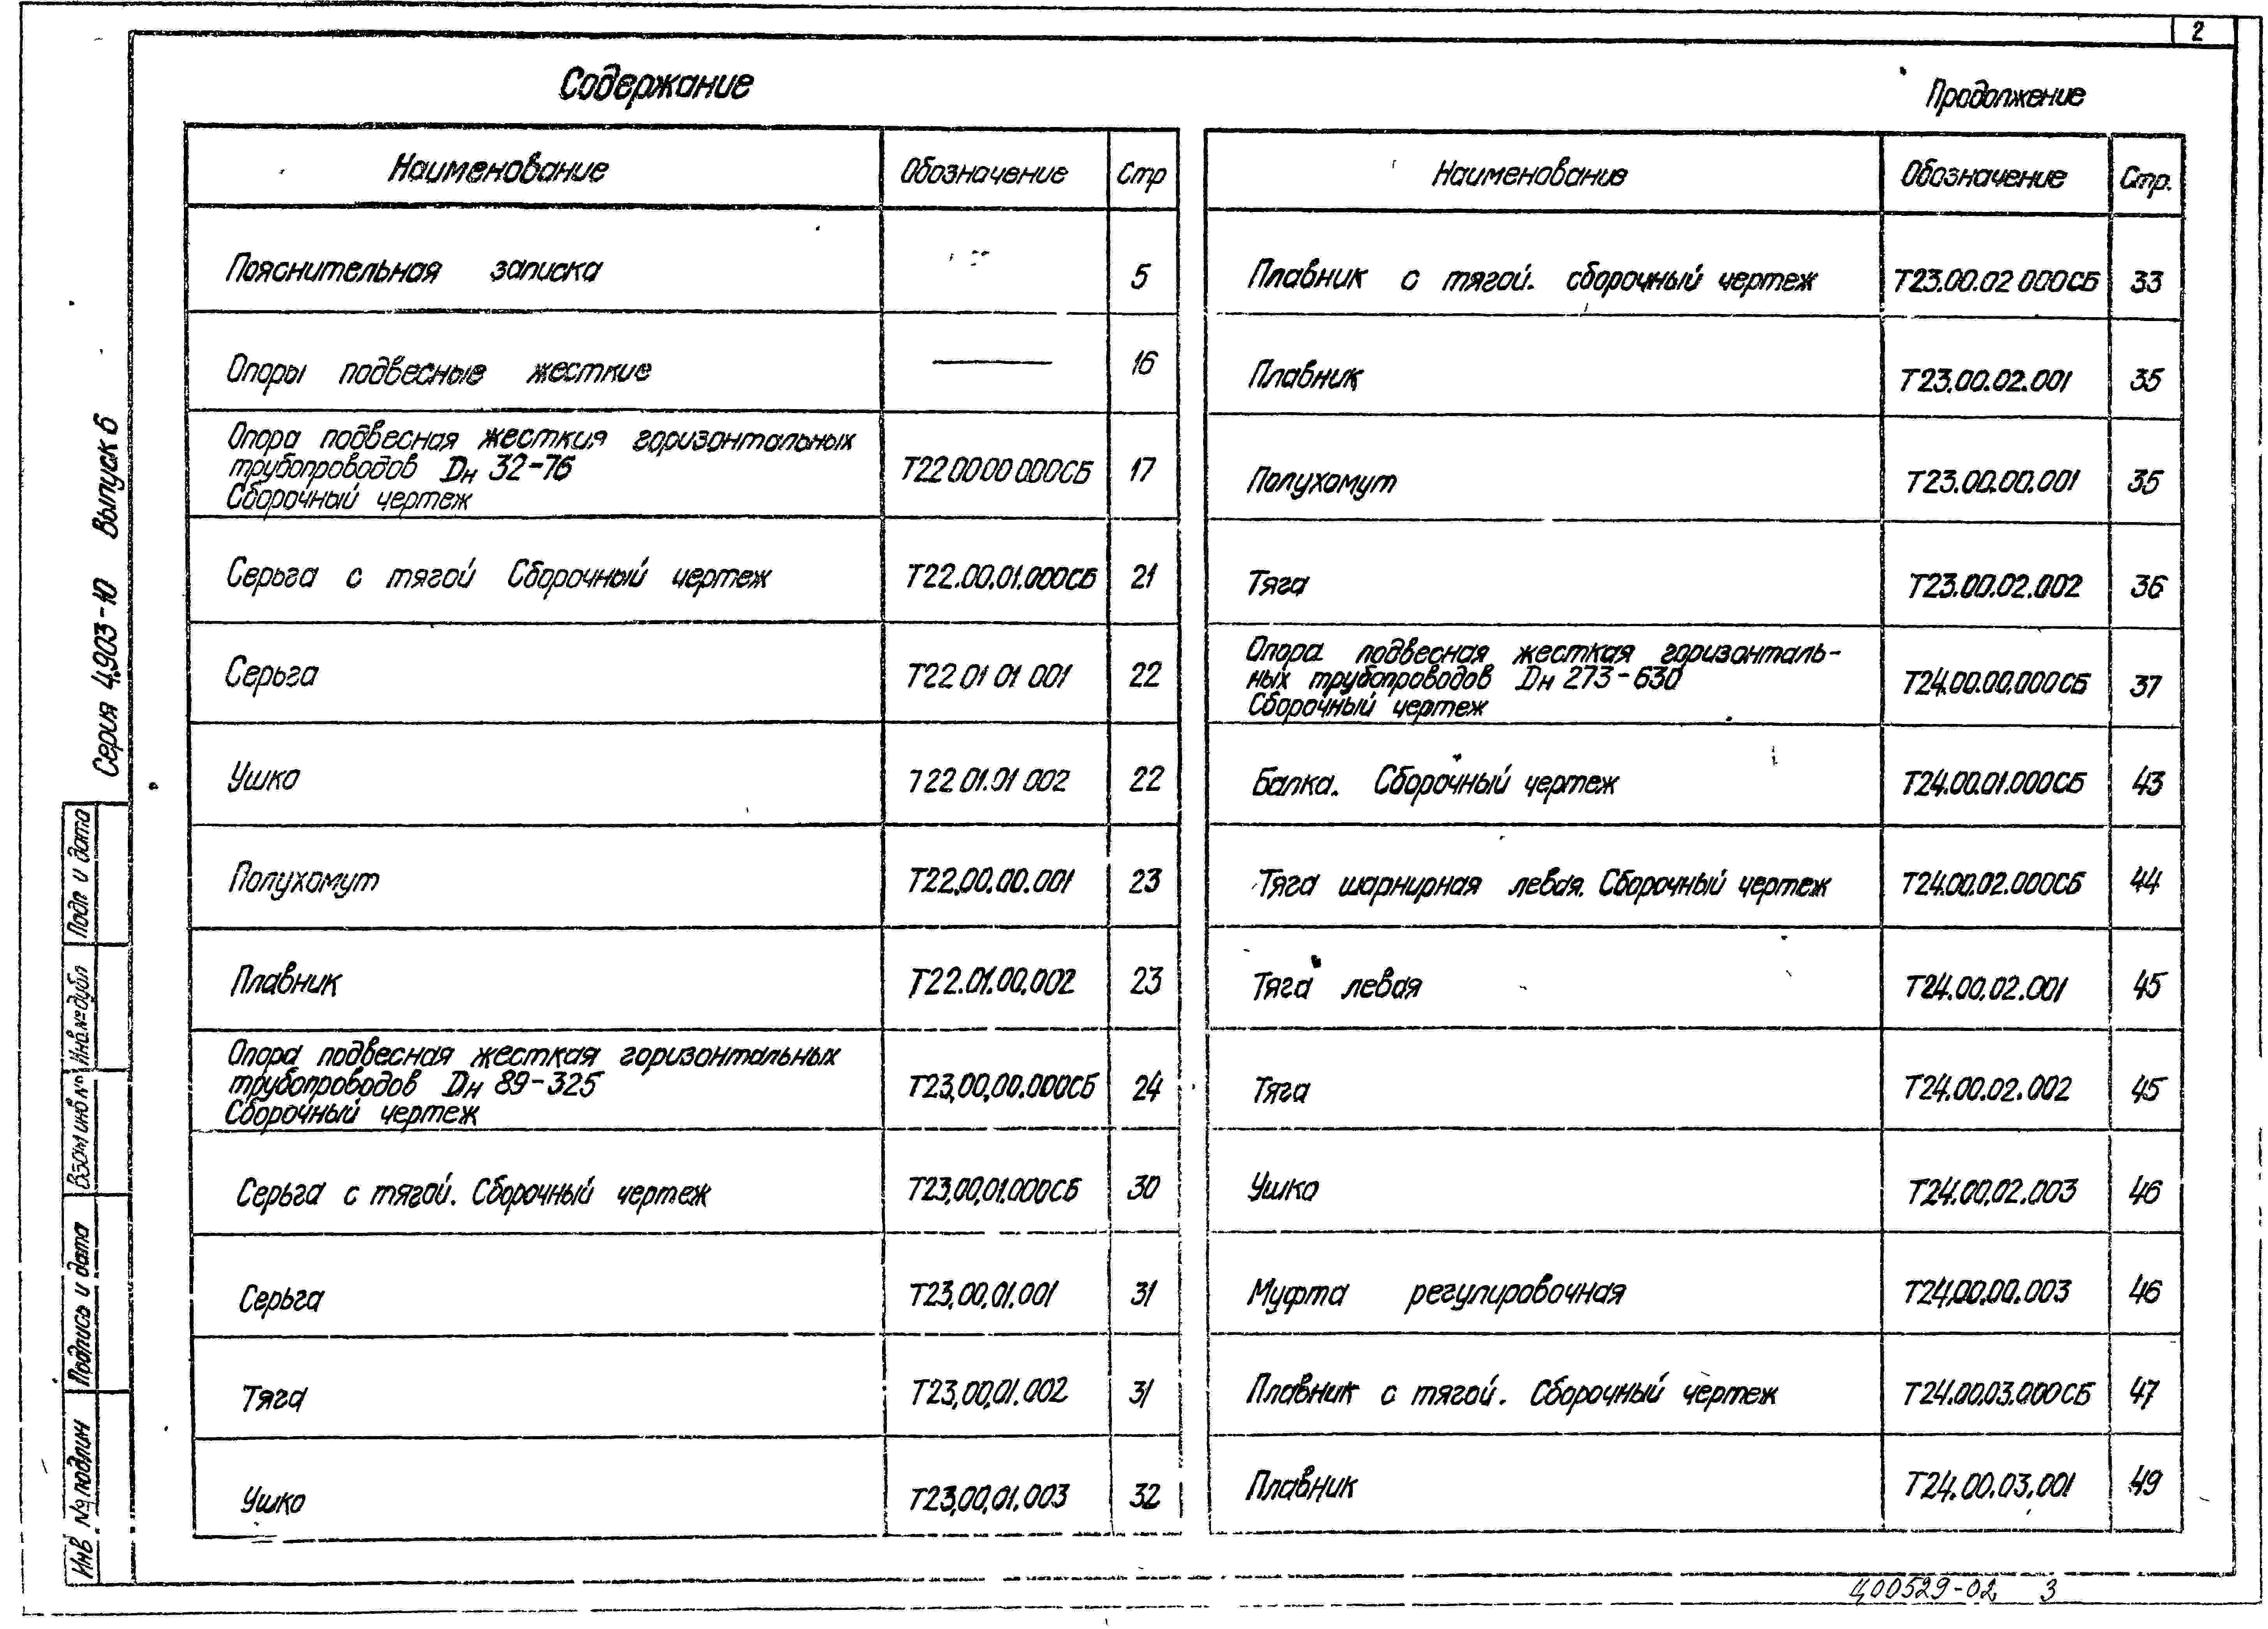 2
Содержание
Наименование Обозначение Стр
Пояснительная записка 5
Опоры подвесные жесткие — 16
Опора подвесная жесткия горизонтальных
трубопроводов Dн 32-76
Сборочный чертеж
Т22 00 00 000СБ 17
Серьга с тягой Сборочный чертеж Т22.00.01.000СБ 21
Серьга Т22 01 01 001 22
Ушко Т22 01.01 002 22
Полухомут Т22.00.00.001 23
Плавник Т22.01.00.002 23
Опора подвесная жесткая горизонтальных
трубопроводов Dн 89-325
Сборочный чертеж
Т23,00,00.000СБ 24
Серьга с тягой. Сборочный чертеж Т23,00,01.000СБ 30
Серьга Т23,00,01.001 31
Тяга Т23,00,01.002 31
Ушко Т23,00,01.003 32
Продолжение
Наименование Обозначение Стр.
Плавник с тягой. сборочный чертеж Т23.00.02 000СБ 33
Плавник Т23.00.02.001 35
Полухомут Т23.00.00.001 35
Тяга Т23.00.02.002 36
Опора подвесная жесткая горизонталь-
ных трубопроводов Dн 273-630
Сборочный чертеж
Т24.00.00.000СБ 37
Балка. Сборочный чертеж Т24.00.01.000СБ 43
Тяга шарнирная левая. Сборочный чертеж Т24.00.02.000СБ 44
Тяга левая Т24.00.02.001 45
Тяга Т24.00.02.002 45
Ушко Т24.00.02.003 46
Муфта регулировочная Т24.00.00.003 46
Плавник с тягой. Сборочный чертеж Т24.00.03.000СБ 47
Плавник Т24.00.03.001 49
Серия 4.903-10 Выпуск 6
Подп и дата
Инв.№ дубл
Взам инв №
Подпись и дата
Инв № подлин
Ц00529-02 3